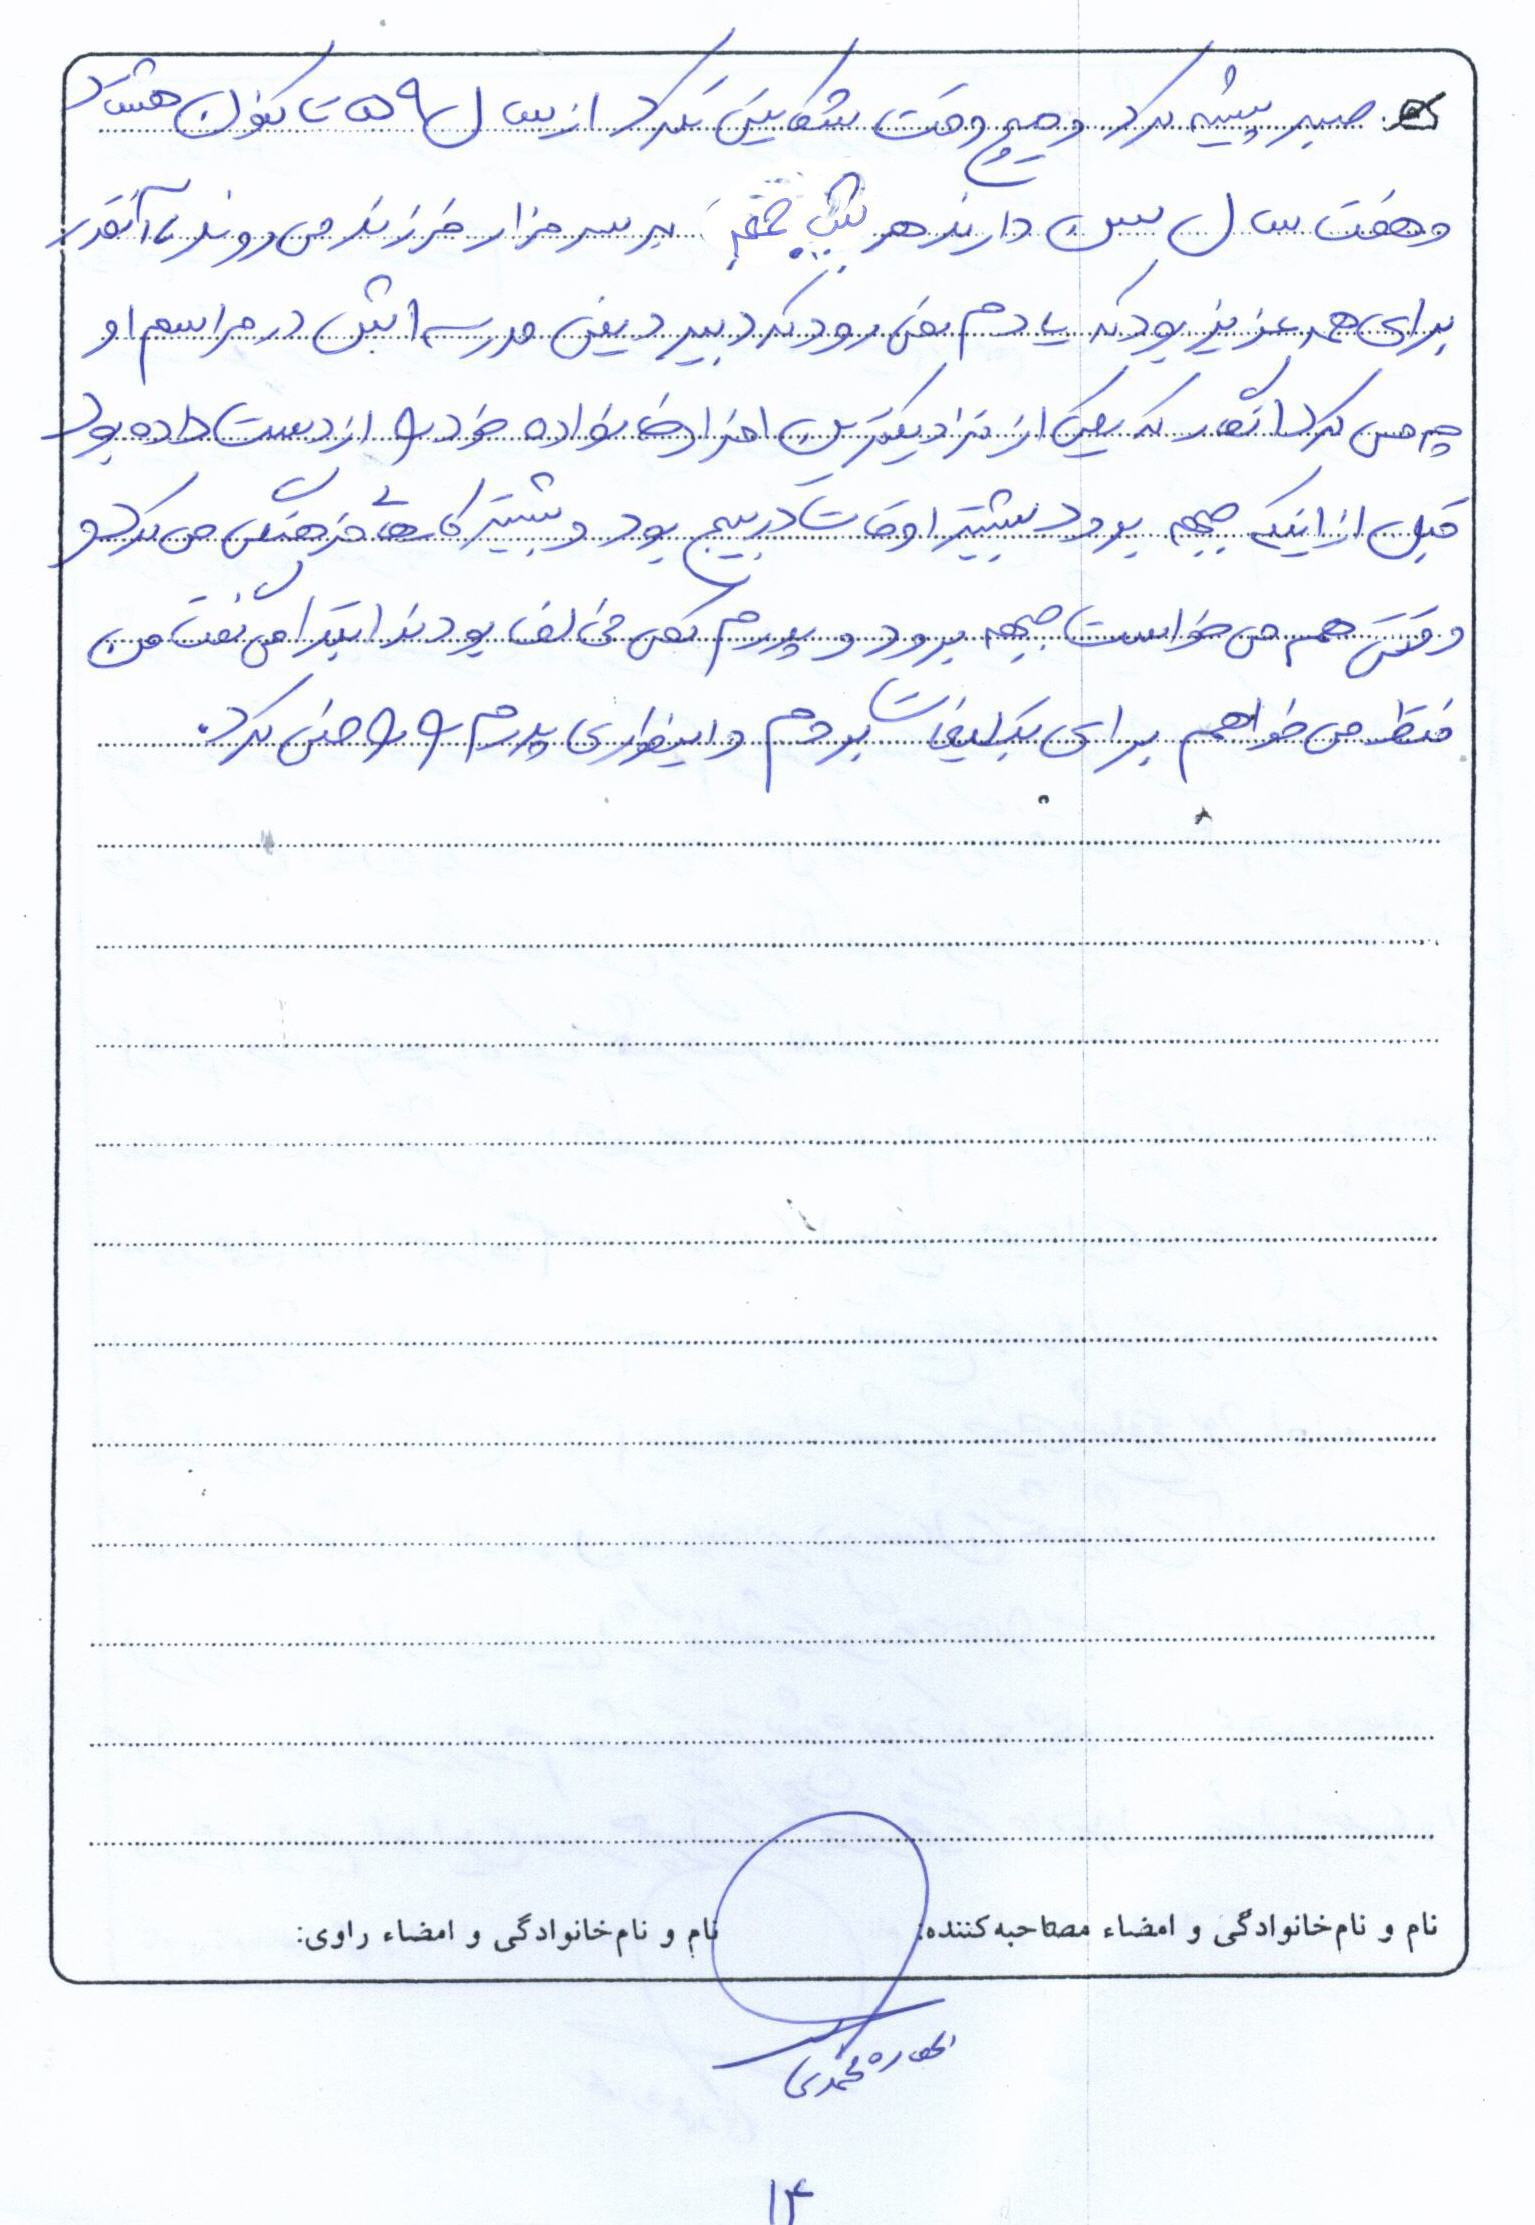 صبر پیشه کرد و هیچ وقت شکایتی نکرد از سال ۵۹ تا کنون هشتاد
و هفت سال سن دارند هر شب جمعه بر سر مزار فرزند می روند آنقدر
برای همه عزیز بود که یادم نمی رود که دبیر دینی مدرسه اش در مراسم او
چه می کرد انگار که یکی از نزدیکترین افراد خانواده خود را از دست داده بود
قبل از اینکه جبهه برود بیشتر اوقات در بسیج بود و بیشتر کارهای فرهنگی می کرد و
وقتی هم می خواست جبهه برود و پدرم کمی مخالف بودند ابتدا می گفت من
فقط می خواهم برای تبلیغات بروم و اینطوری پدرم را راضی کرد.
نام و نام‌خانوادگی و امضاء مصاحبه‌کننده: نام و نام‌خانوادگی و امضاء راوی:
محمدی
۱۴